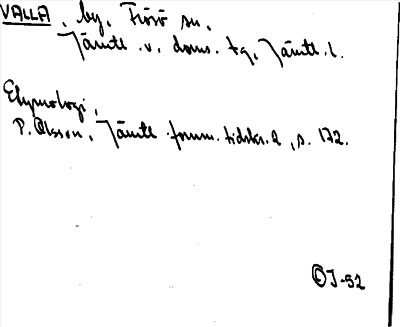 VALLA, by, Frösö sn,
Jämtl. v. doms. tg, Jämtl. l.
Etymologi,
P. Olsson, Jämtl. fornm. tidskr. 2, s. 172.
ÖJ-52